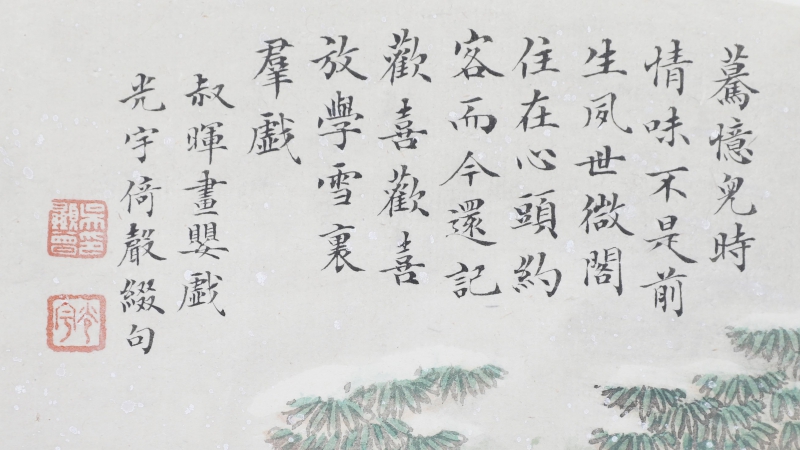 驀憶兒時
情味不是前
生夙世微閣
住在心頭約
客而今還記
歡喜歡喜
放學雪裏
羣戲
叔暉畫嬰戲
光宇倚聲綴句
光宇